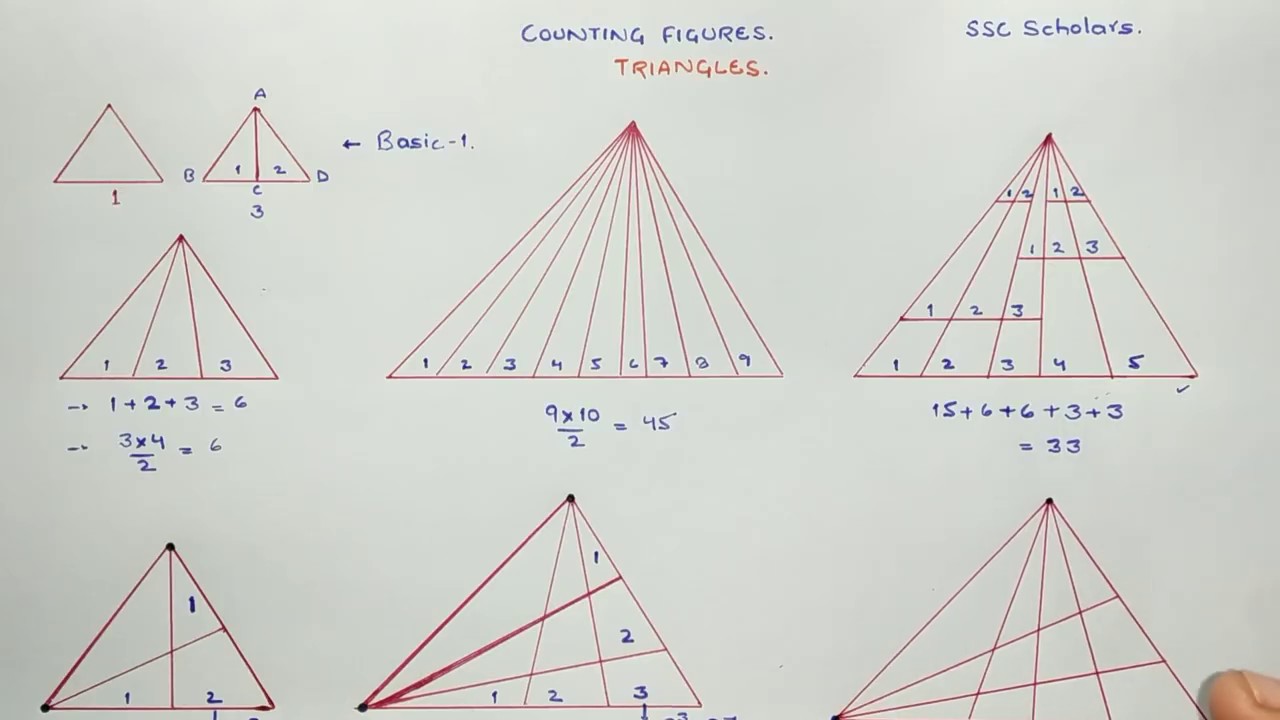 COUNTING FIGURES.
SSC Scholars.
TRIANGLES.
A
← Basic-1.
1 2
B C D
1
3
1 2 1 2
1 2 3
1 2 3
1 2 3
1 2 3 4 5 6 7 8 9
1 2 3 4 5
→ 1+2+3 = 6
→ 3×4/2 = 6
9×10/2 = 45
15+6+6+3+3
= 33
1
1 2
1
2
1 2 3